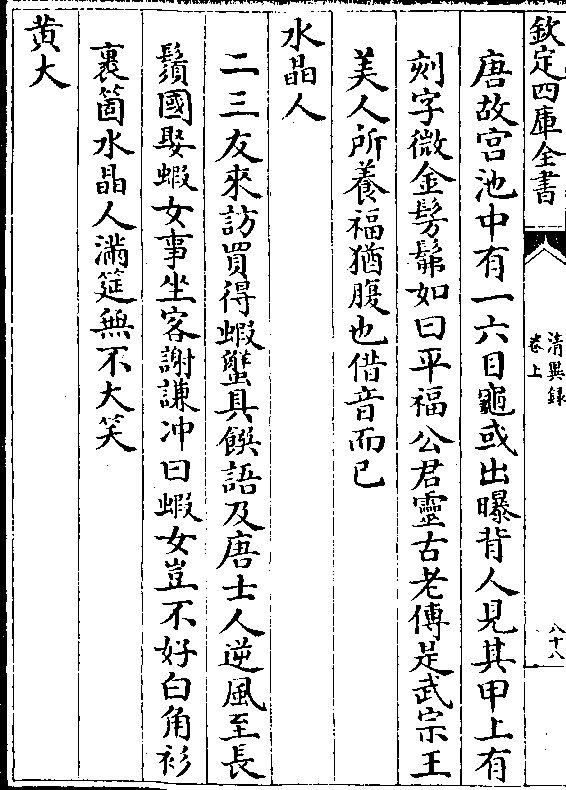 欽定四庫全書
清異録
卷上
八十八
唐故宫池中有一六目龜或出曝背人見其甲上有
刻字微金髣髴如曰平福公君靈古老傳是武宗王
美人所養福猶腹也借音而已
水晶人
二三友來訪買得蝦蟹具饌語及唐士人逆風至長
鬚國娶蝦女事坐客謝謙冲曰蝦女豈不好白角衫
裹箇水晶人滿筵無不大笑
黄大